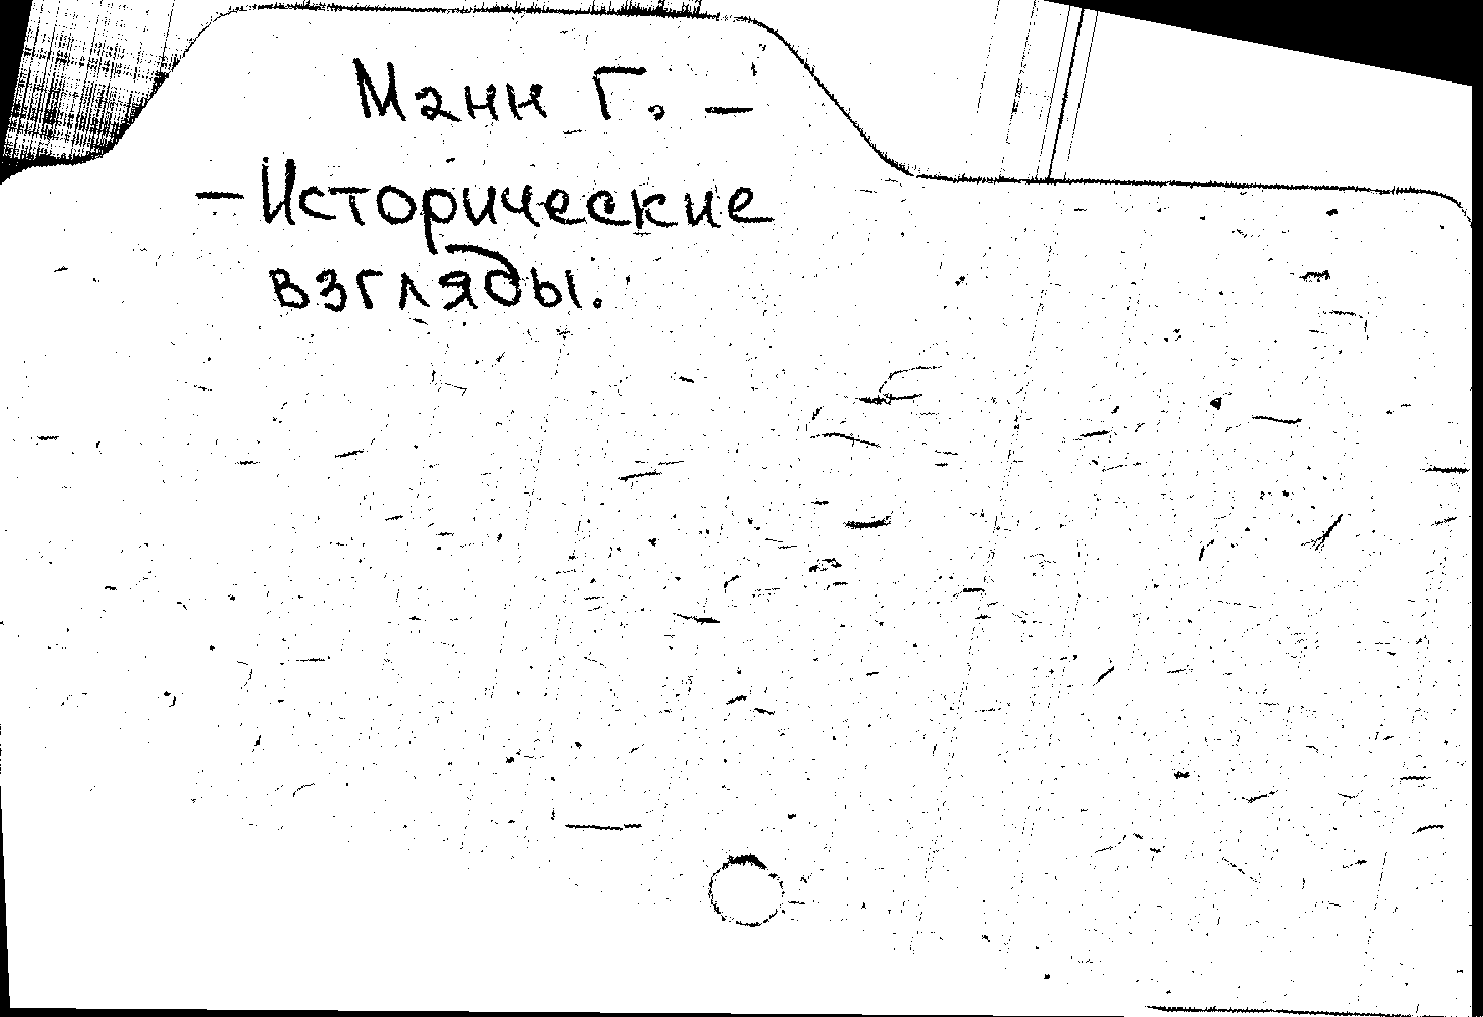 Манн Г. –
– Исторические
взгляды.